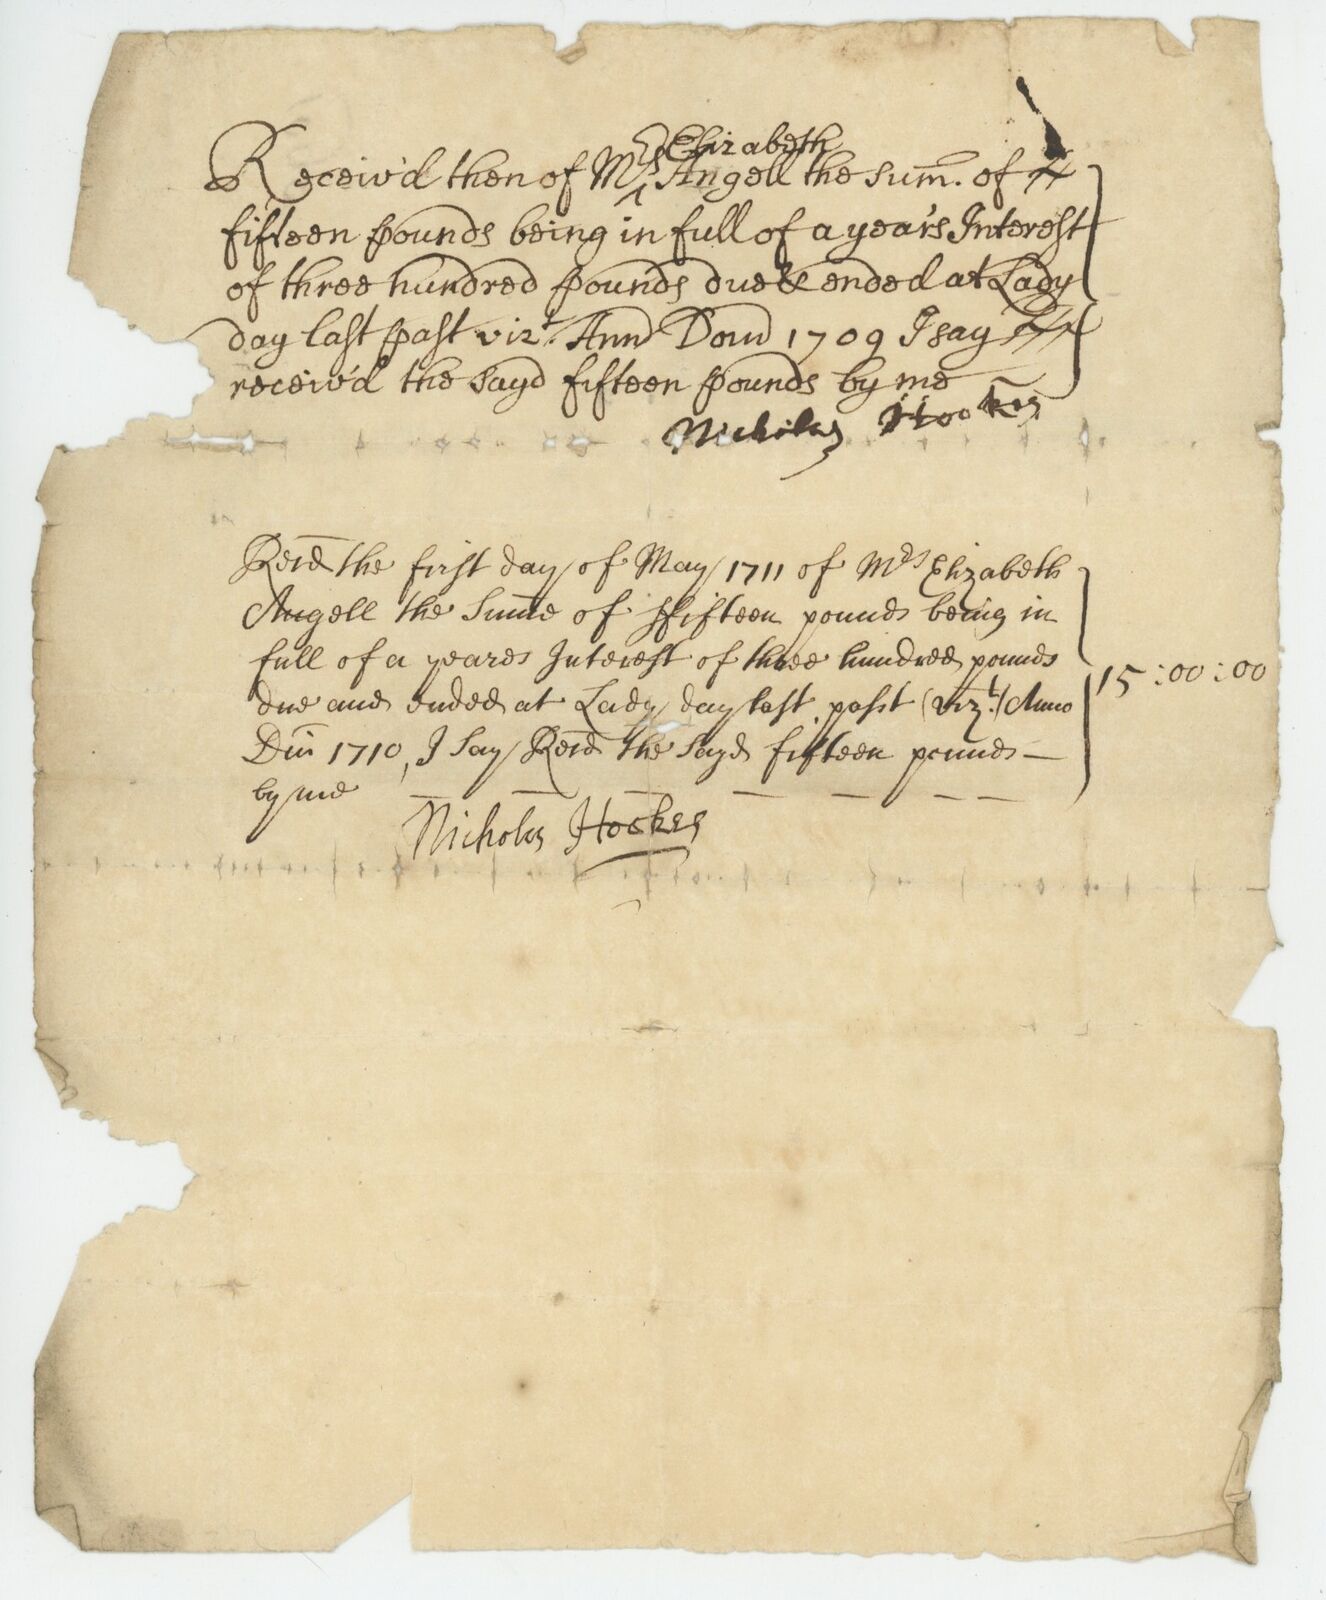 Elizabeth
Receiv'd then of Mrs Angell the sum̄. of
fifteen pounds being in full of a year's Interest
of three hundred pounds due & ended at Lady
day last past vizt. Ann Dom 1709 I say
receiv'd the sayd fifteen pounds by me
Nicholas Hookes
Recd the first day of May 1711 of Mrs Elizabeth
Angell the Sum̄e of ffifteen pounds being in
full of a yeares Interest of three hundred pounds
due and ended at Lady day last past (vizt.) Anno
Dn̄i 1710, I Say Recd the sayd fifteen pounds —
by me — — — — — — —
15:00:00
Nicholas Hookes